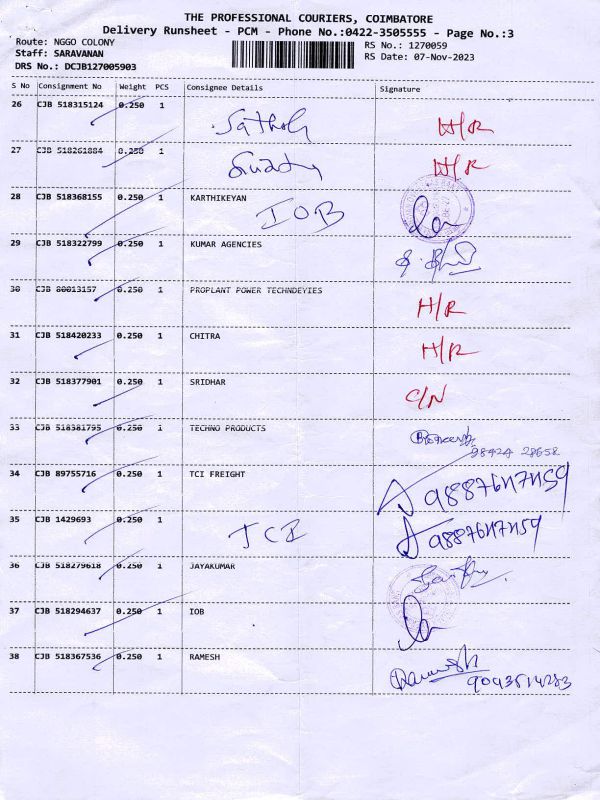 THE PROFESSIONAL COURIERS, COIMBATORE
Delivery Runsheet - PCM - Phone No.:0422-3505555 - Page No.:3
Route: NGGO COLONY RS No.: 1270059
Staff: SARAVANAN RS Date: 07-Nov-2023
DRS No.: DCJB127005903
S No Consignment No Weight PCS Consignee Details Signature
26 CJB 518315124 0.250 1 H/R
27 CJB 518261884 0.250 1 H/R
28 CJB 518368155 0.250 1 KARTHIKEYAN IOB
29 CJB 518322799 0.250 1 KUMAR AGENCIES
30 CJB 80013157 0.250 1 PROPLANT POWER TECHNDEYIES H/R
31 CJB 518420233 0.250 1 CHITRA H/R
32 CJB 518377901 0.250 1 SRIDHAR C/N
33 CJB 518381795 0.250 1 TECHNO PRODUCTS 98424 28658
34 CJB 89755716 0.250 1 TCI FREIGHT
35 CJB 1429693 0.250 1 TCI
36 CJB 518279618 0.250 1 JAYAKUMAR
37 CJB 518294637 0.250 1 IOB
38 CJB 518367536 0.250 1 RAMESH Ramesh